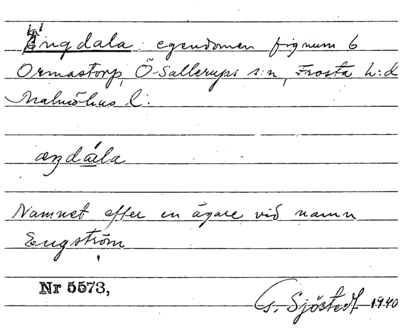 Engdala: egendomen fignum 6
Ormastorp, Ö. Sallerups s:n, Frosta h:d
Malmöhus l:
æŋdála
Namnet efter en ägare vid namn
Engström
Nr 5573,
G. Sjöstedt 1940